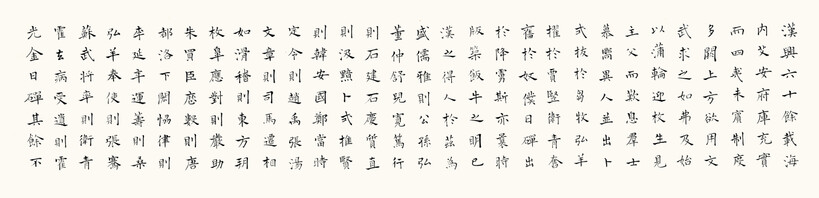 漢興六十餘載海
內艾安府庫充實
而四夷未賓制度
多闕上方欲用文
武求之如弗及始
以蒲輪迎枚生見
主父而歎息群士
慕嚮異人並出卜
式拔於芻牧弘羊
擢於賈豎衛青奮
於奴僕日磾出
於降虜斯亦曩時
版築飯牛之明已
漢之得人於茲為
盛儒雅則公孫弘
董仲舒兒寬篤行
則石建石慶質直
則汲黯卜式推賢
則韓安國鄭當時
定令則趙禹張湯
文章則司馬遷相
如滑稽則東方朔
枚皋應對則嚴助
朱買臣歷數則唐
都洛下閎協律則
李延年運籌則桑
弘羊奉使則張騫
蘇武將率則衛青
霍去病受遺則霍
光金日磾其餘不